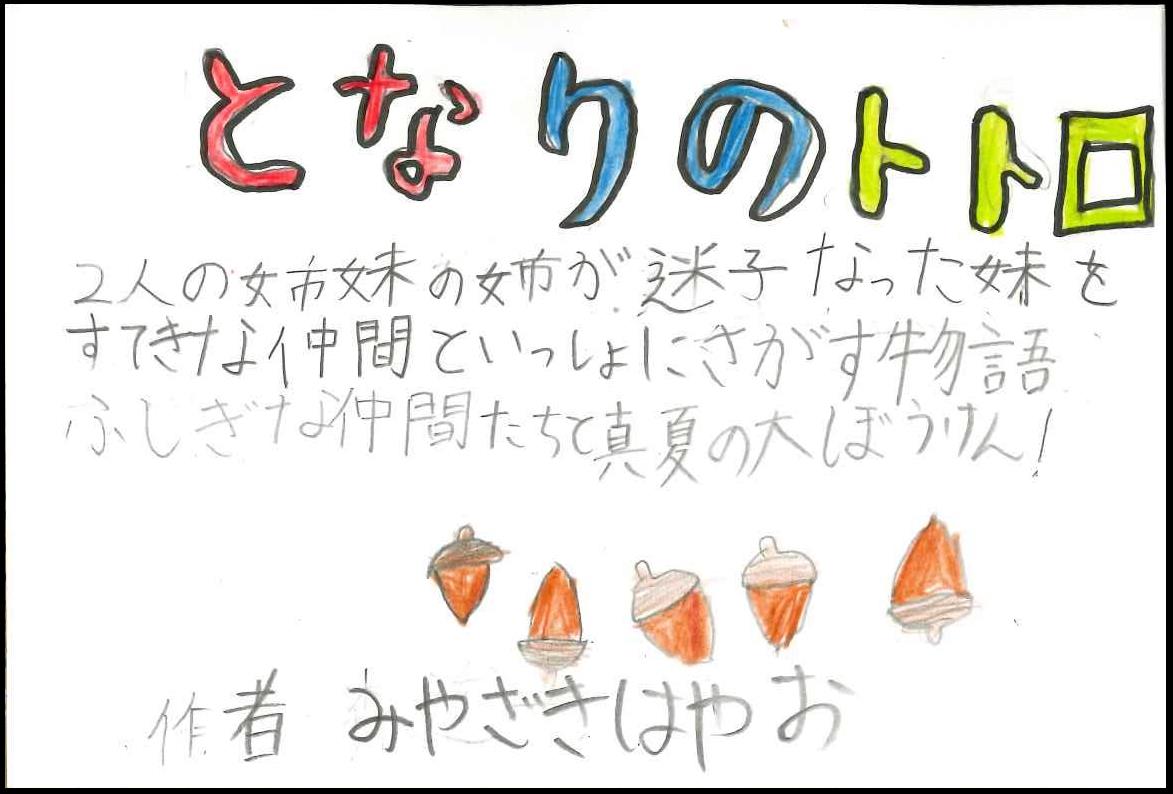 となりのトトロ
2人の姉妹の姉が迷子なった妹を
すてきな仲間といっしょにさがす物語
ふしぎな仲間たちと真夏の大ぼうけん!
作者 みやざきはやお